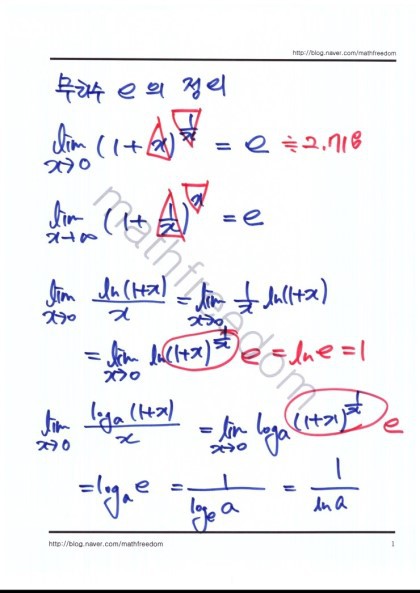 http://blog.naver.com/mathfreedom
무리수 e의 정의
lim x→0 (1+x)^(1/x) = e ≒ 2.718
lim x→∞ (1+1/x)^x = e
lim x→0 ln(1+x)/x = lim x→0 1/x ln(1+x)
= lim x→0 ln(1+x)^(1/x) e = ln e = 1
lim x→0 log_a(1+x)/x = lim x→0 log_a (1+x)^(1/x) e
= log_a e = 1/log_e a = 1/ln a
mathfreedom
http://blog.naver.com/mathfreedom 1